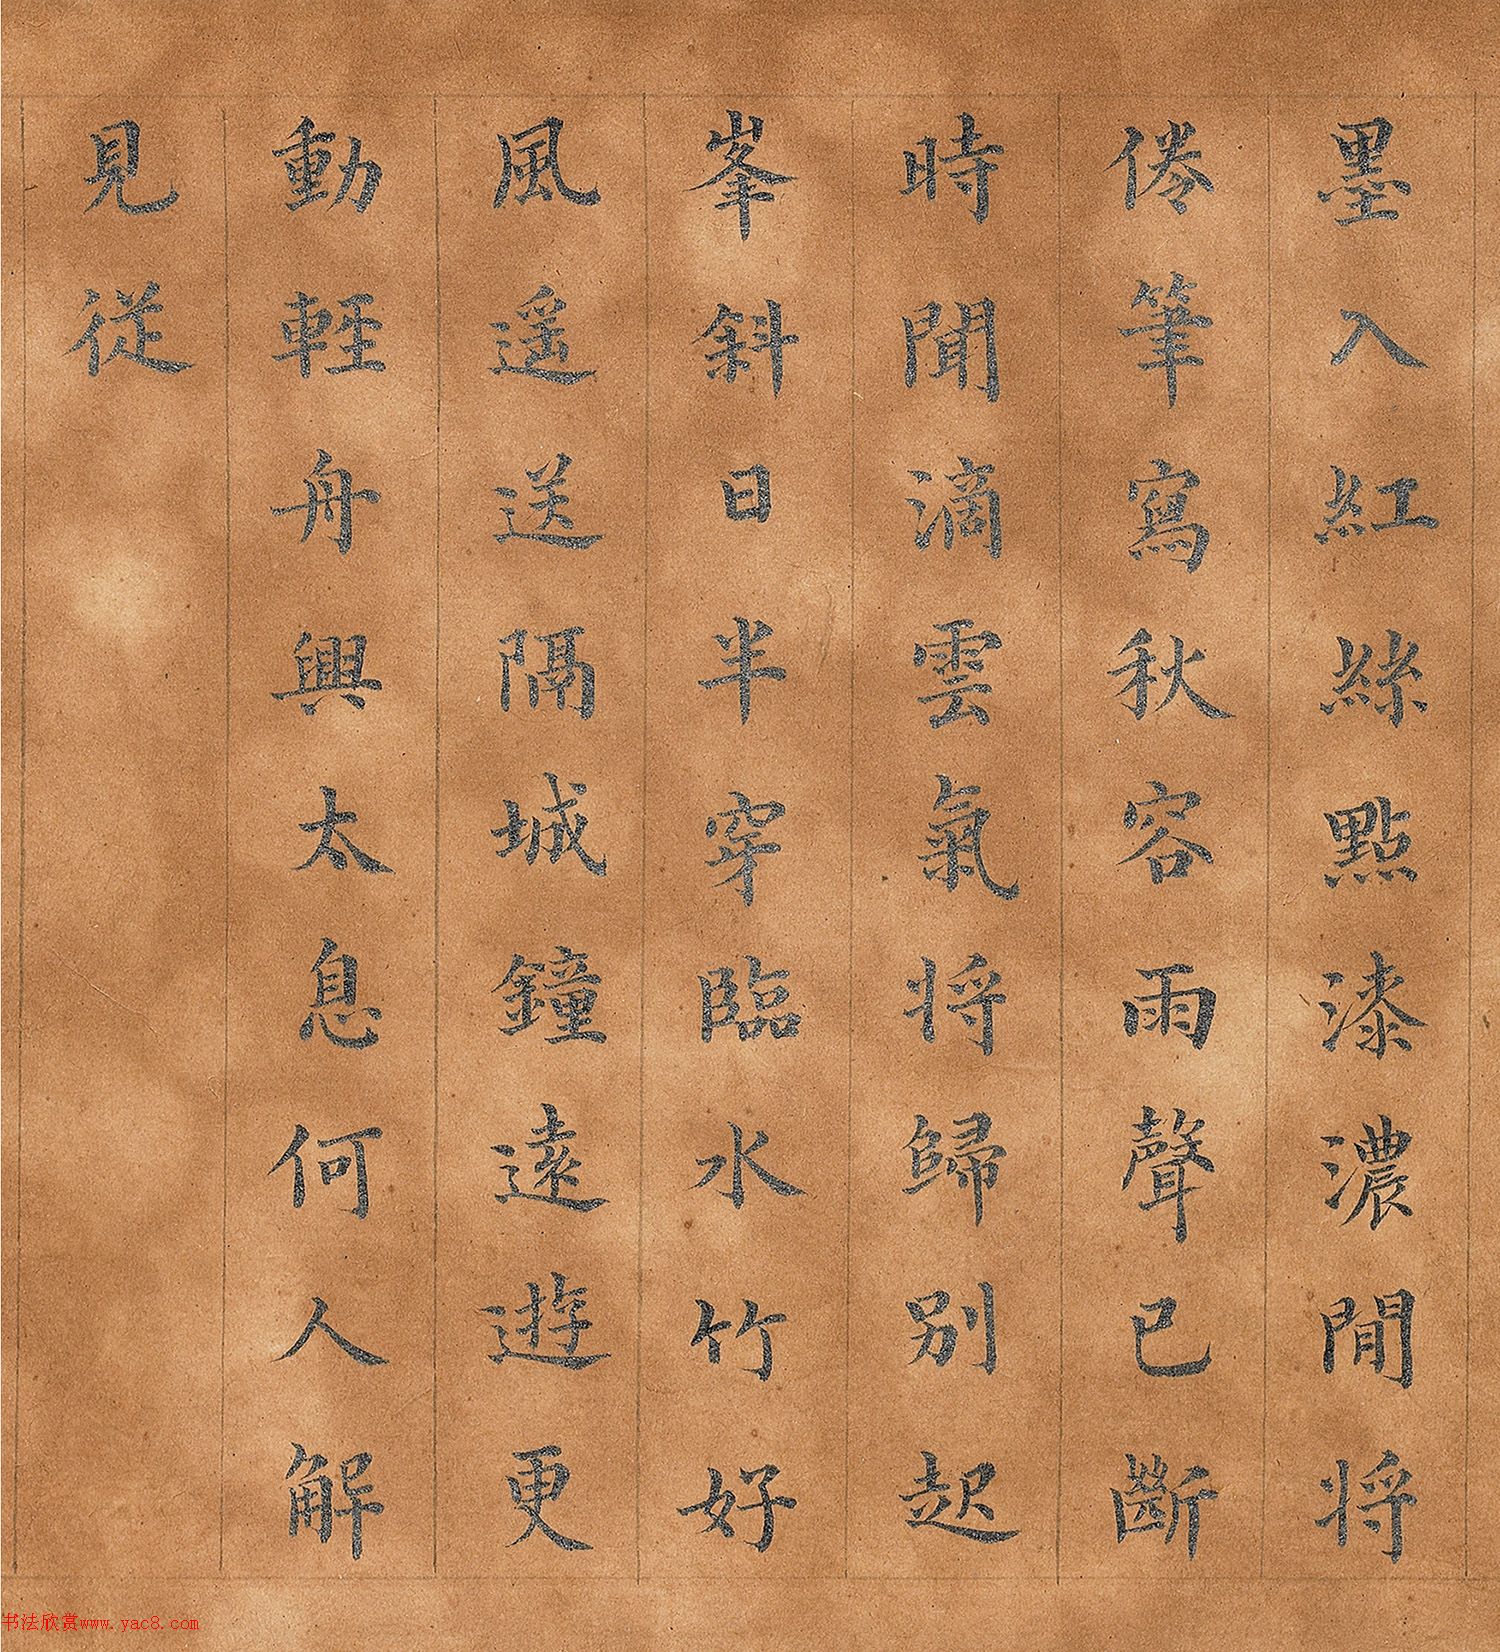 墨入紅絲點漆濃閒將
倦筆寫秋容雨聲已斷
時聞滴雲氣將歸別起
峯斜日半穿臨水竹好
風遥送隔城鐘遠遊更
動輕舟興太息何人解
見從
书法欣赏www.yac8.com